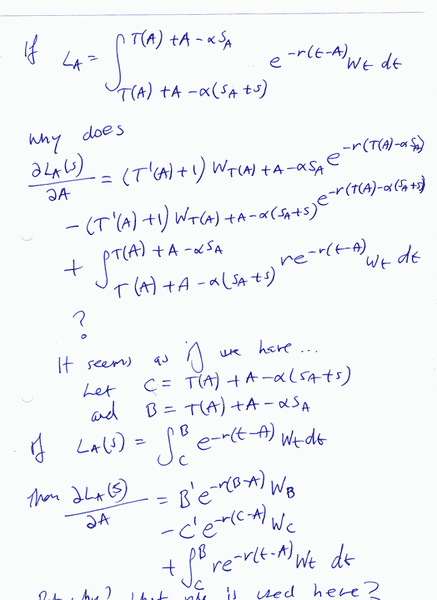 If L_A = ∫_{T(A) + A - αS_A}^{T(A) + A - αS_A} e^{-r(t-A)} W_t dt
why does
∂L_A(s)/∂A = (T'(A) + 1) W_{T(A) + A - αS_A} e^{-r(T(A) - αS_A)}
- (T'(A) + 1) W_{T(A) + A - α(S_A + s)} e^{-r(T(A) - α(S_A + s))}
+ ∫_{T(A) + A - α(S_A + s)}^{T(A) + A - αS_A} re^{-r(t-A)} W_t dt
?
It seems as if we have...
Let C = T(A) + A - α(S_A + s)
and B = T(A) + A - αS_A
If L_A(s) = ∫_C^B e^{-r(t-A)} W_t dt
then ∂L_A(s)/∂A = B'e^{-r(B-A)} W_B
- C'e^{-r(C-A)} W_C
+ ∫_C^B re^{-r(t-A)} W_t dt
is used here?